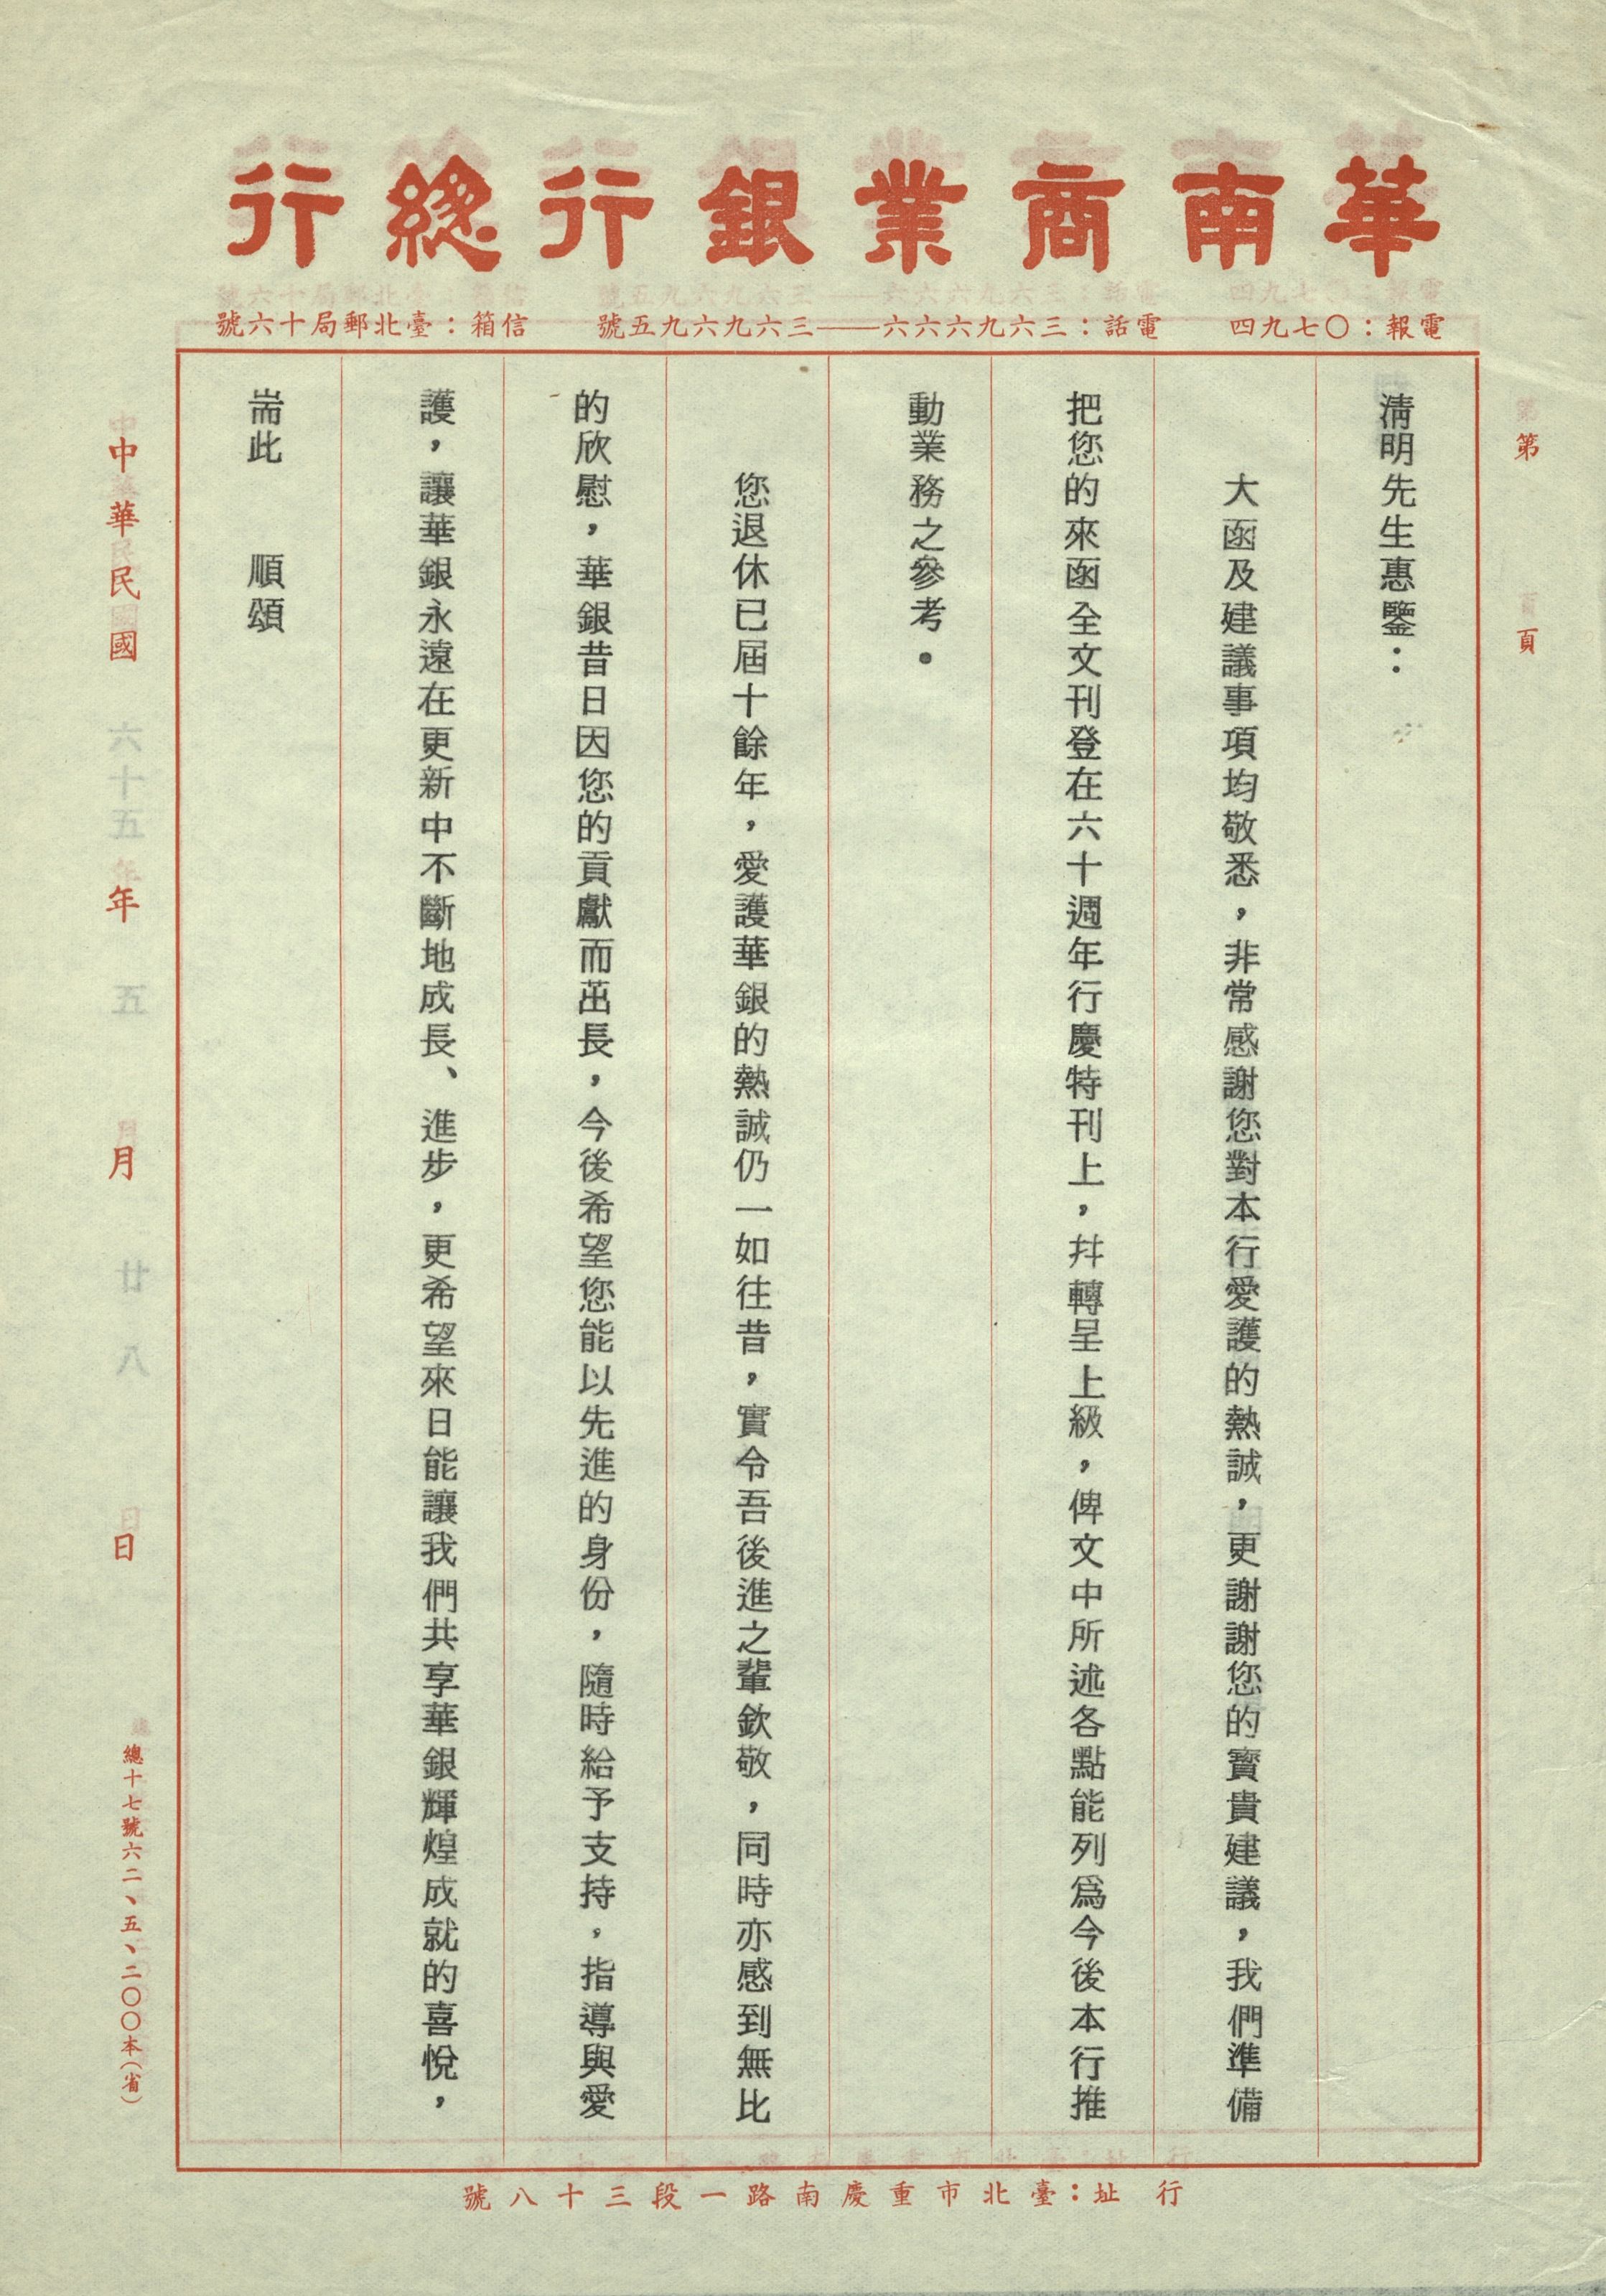 華南商業銀行總行
電報：〇七九四　電話：三六九六六六——三六九六九五號　信箱：臺北郵局十六號
第　頁
清明先生惠鑒：
大函及建議事項均敬悉，非常感謝您對本行愛護的熱誠，更謝謝您的寶貴建議，我們準備
把您的來函全文刊登在六十週年行慶特刊上，幷轉呈上級，俾文中所述各點能列爲今後本行推
動業務之參考．
您退休已屆十餘年，愛護華銀的熱誠仍一如往昔，實令吾後進之輩欽敬，同時亦感到無比
的欣慰，華銀昔日因您的貢獻而茁長，今後希望您能以先進的身份，隨時給予支持，指導與愛
護，讓華銀永遠在更新中不斷地成長、進步，更希望來日能讓我們共享華銀輝煌成就的喜悅，
耑此　順頌
中華民國　年　月　日
六十五　五　廿八
總十七號六二、五、二〇〇本（省）
行址：臺北市重慶南路一段三十八號